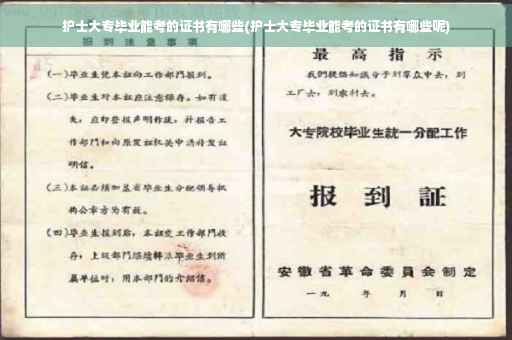 护士大专毕业能考的证书有哪些(护士大专毕业能考的证书有哪些呢)
报到注意事项
(一)毕业生凭本证向工作部門报到。
(二)毕业生对本证应注意保存。如有遺
失,应即登报声明作废,并报告工
作部門和向原发证机关申請补发证
明信。
(三)本证必须加盖省毕业生分配领导机
构公章方为有效。
(四)毕业生报到后,本证交工作部門收
存,上级部門
属单位时,用本部門的介绍信。
最高指示
我們提倡知識分子到羣众中去,到
工厂去,到农村去。
大专院校毕业生統一分配工作
报到証
安徽省革命委員会制定
一九 年 月 日